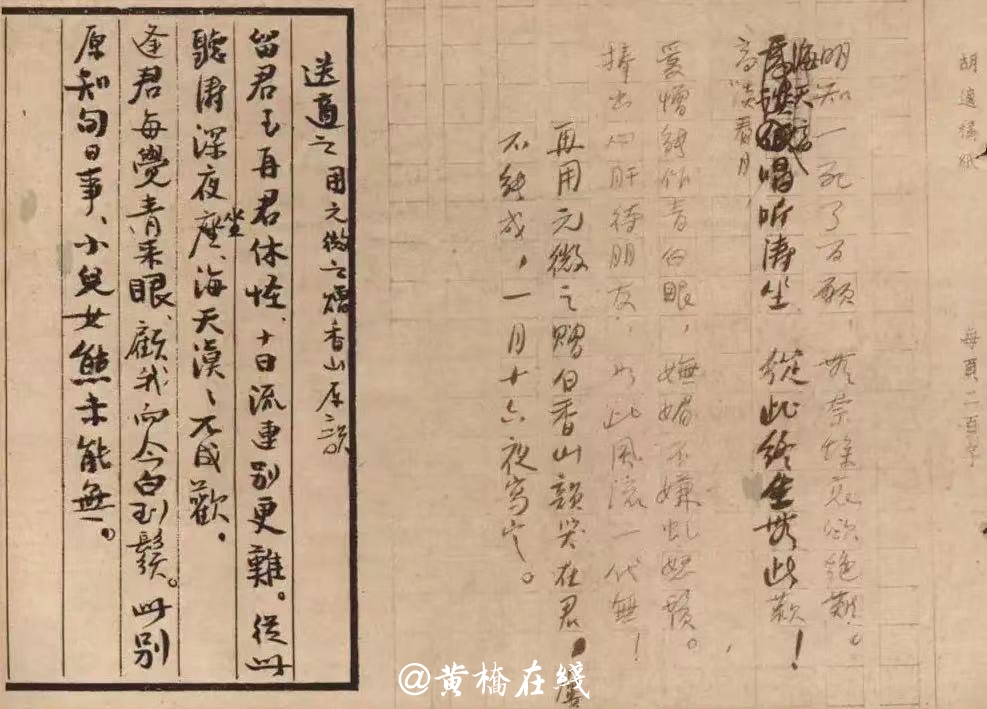 胡適稿紙
每頁二百字
明知一死了百願,無奈餘哀欲絕難。
高談看月,
听涛坐 從此終生無此歡!
愛憎能作青白眼,嫵媚不嫌虬怒鬚。
捧出心肝待朋友,如此風流一代無!
再用元微之贈白香山韻哭在君,屢
不能成,一月十六夜寫定。
送適之用元微之贈香山原韻
留君至再君休怪、十日流連別更難。從此
聽濤深夜坐、海天漠、不成歡。
逢君每覺青來眼、顧我而今白到鬚。此別
原知旬日事、小兒女態未能無。
@黄橋在綫